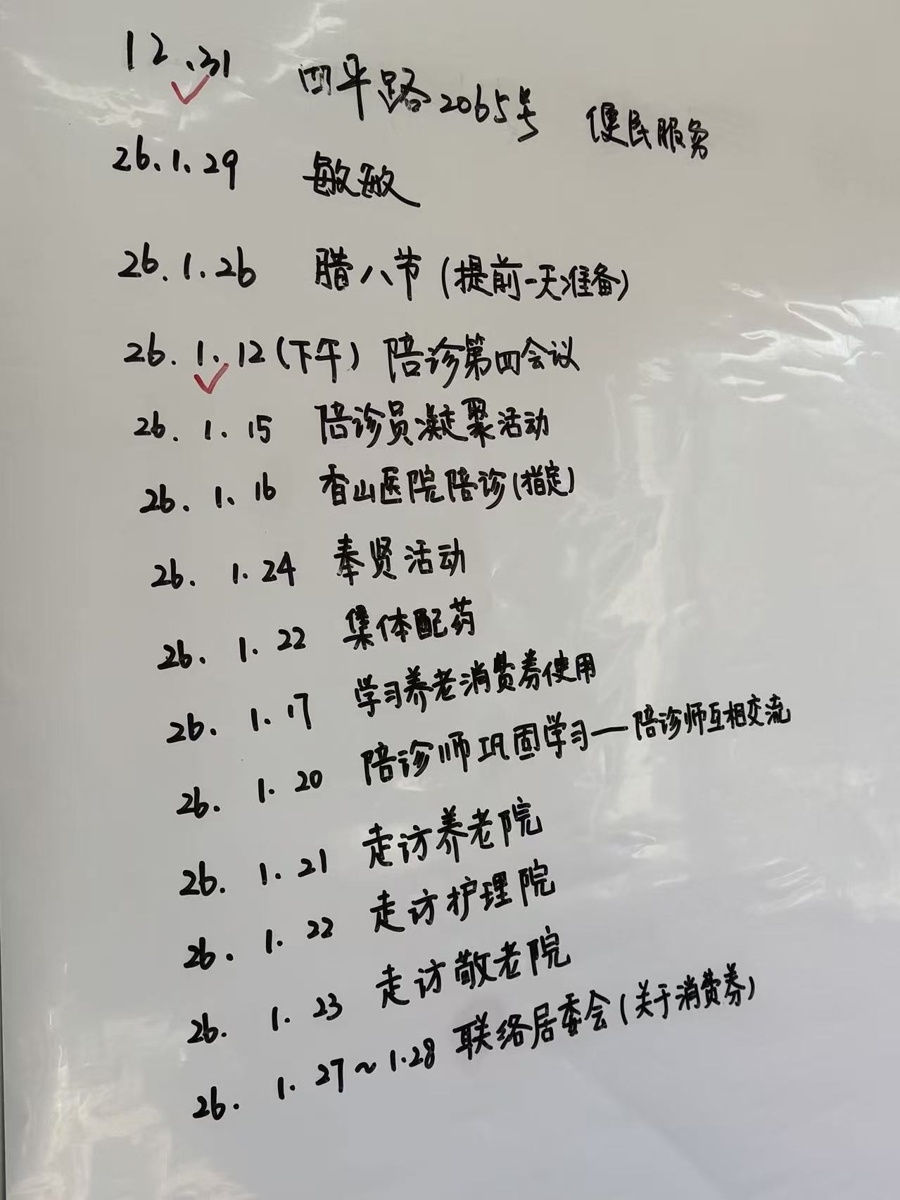 12.31 四平路2065号 便民服务
26.1.29 敏敏
26.1.26 腊八节(提前一天准备)
26.1.12(下午) 陪诊第四会议
26.1.15 陪诊员凝聚活动
26.1.16 香山医院陪诊(指定)
26.1.24 奉贤活动
26.1.22 集体配药
26.1.17 学习养老消费券使用
26.1.20 陪诊师巩固学习—陪诊师互相交流
26.1.21 走访养老院
26.1.22 走访护理院
26.1.23 走访敬老院
26.1.27~1.28 联络居委会(关于消费券)